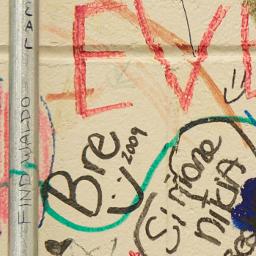 CAL
FIND WALDO
EV
Bre
2009
Simone
+
nikia